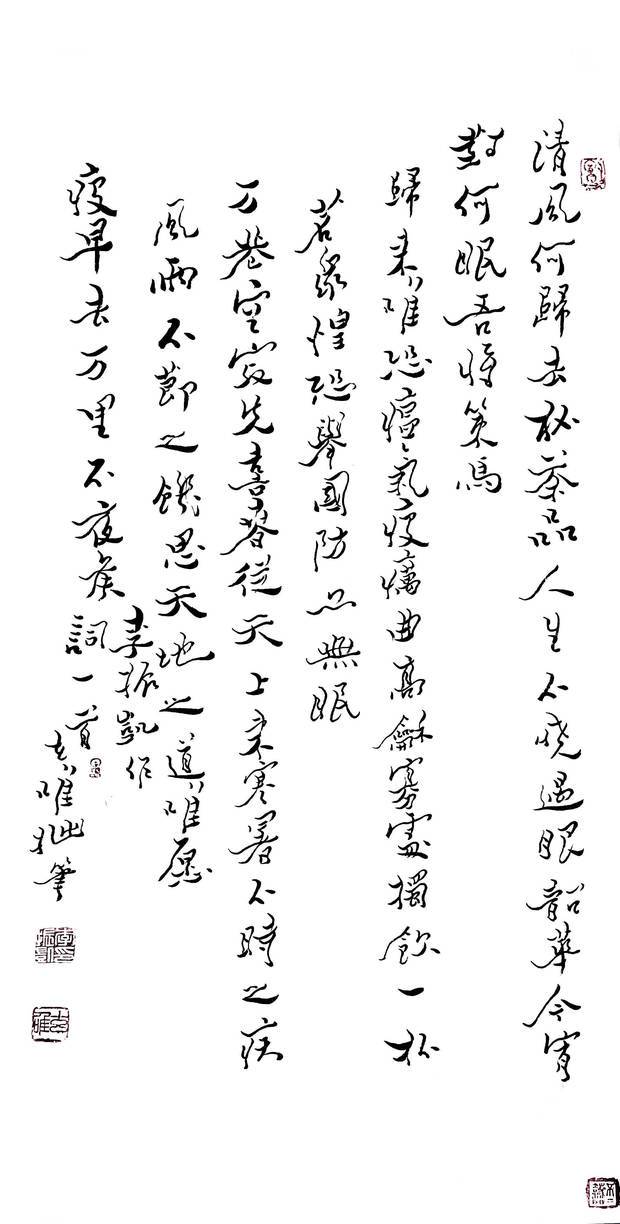 清風何歸去茶品人生不曉過眼韶華今宵
對何眠吾將策馬
歸来唯恐瘟氣疫癘曲高龢寡獨飲一杯
茗眾惶恐舉國防無眠
万巷空寂先喜春從天上来寒暑不時之疾
風雨不節之饑思天地之道唯愿
疫早去万里不夜矦詞一首
李振凱作
唯拙筆